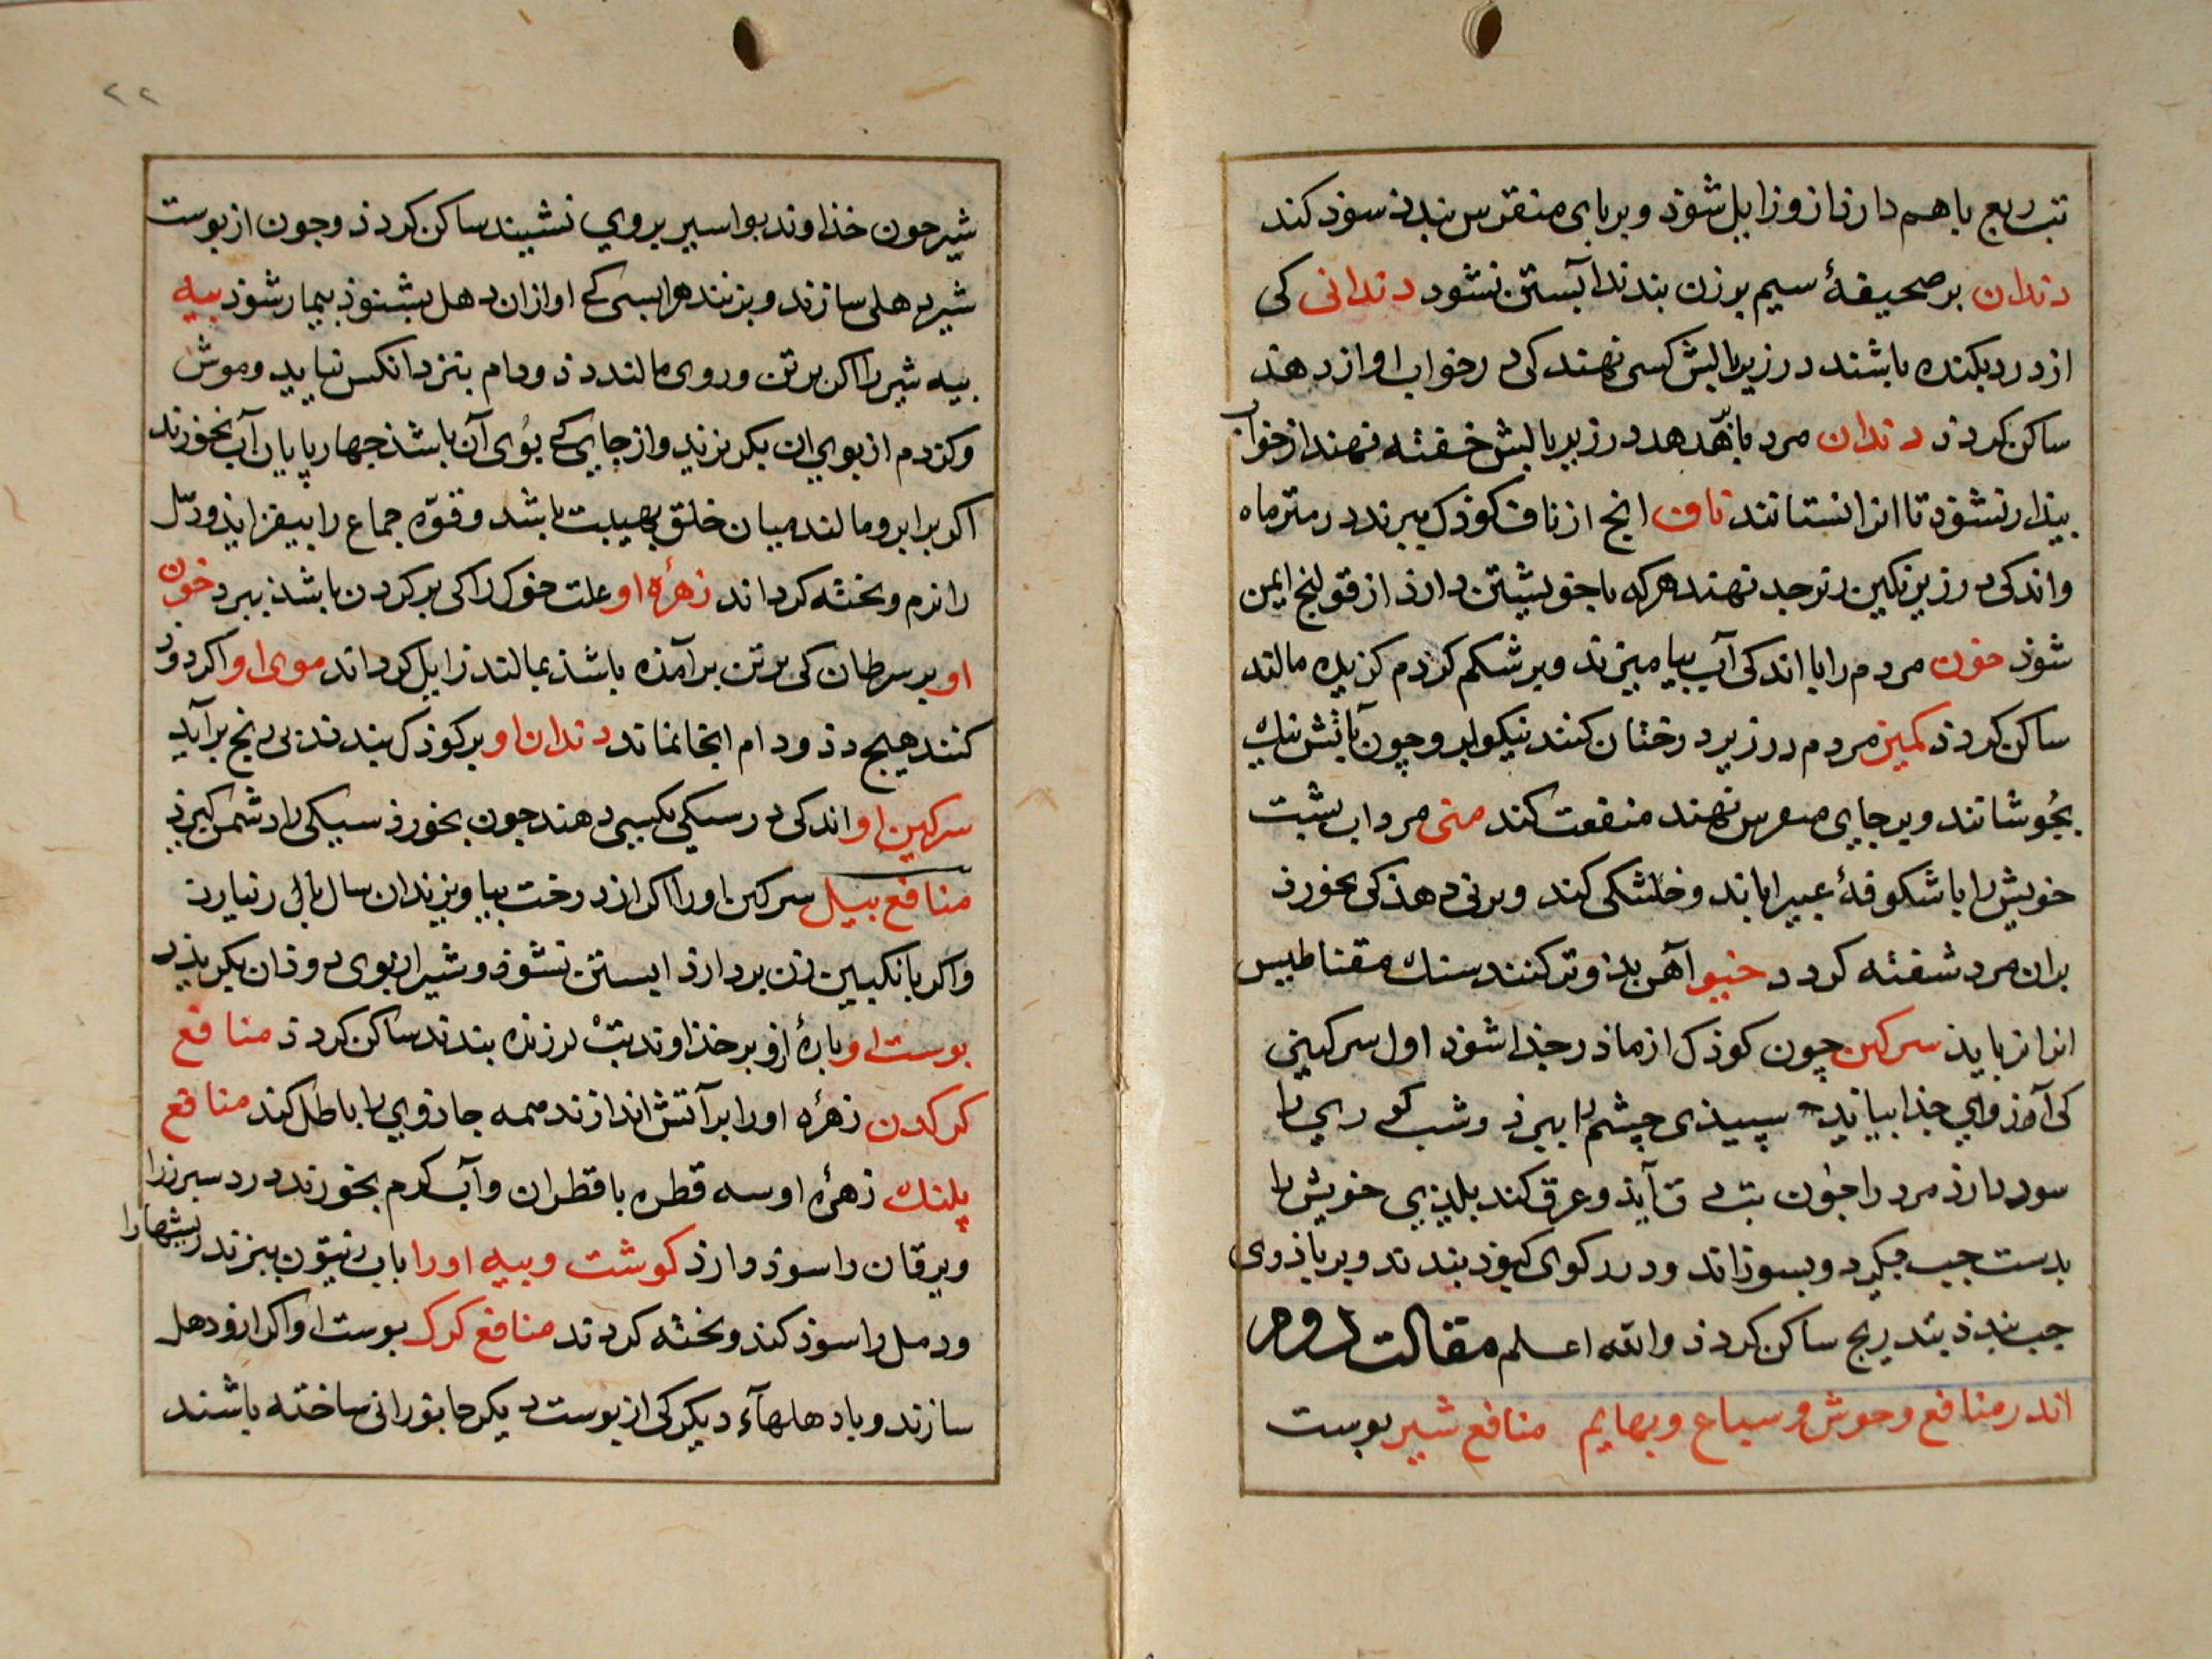 تب ربع با هم دارد ازو زایل شوذ و بر پای منقرس بندند سوذ کند
دندان بر صحیفهٔ سیم بر زن بندند آبستن نشود دندانی کی
از درد بکنده باشند در زیر بالش کسی نهند کی در خواب اواز دهذ
ساکن کردذ دندان مرد با پر هدهد در زیر بالیش خفته نهند از خواب
بیذار نشوذ تا انرا نستانند ناف انج از ناف کوذک ببرند در متر ماه
واندکی در زیر نکین زبرجد نهند هر که با خویشتن دارذ از قولنج ایمن
شوذ خون مردم را با اندکی آب بیامیزند و بر شکم کزدم کزیده مالند
ساکن کردذ کمیز مردم در زیر درختان کنند نیکو ابد و چون بآتش نیک
بجُوشانند و بر جایی منقرس نهند منفعت کند منی مرد اب پشت
خویش را با شکوفهٔ عبیرا باند و خشکی کند و بزنی دهذ کی بخورذ
بران مرد شفته کردد خیو آهن بدو تر کنند سنک مقناطیس
انرا نرباید سرکین چون کوذک از ماذر جذا شوذ اول سرکینی
کی آمز وایی جذا بیاند سپیذی چشم را ببرذ و شب کوری را
سود دارذ مرد را چون تب آیذ و عرق کند پلیذیی خویش را
بدست چپ بکیرد و بسوزاند و در رکوی کبوذ بندند و بر باذوی
چپ بندذ بتدریج ساکن کردذ والله اعلم مقالت دوم
اندر منافع وحوش و سباع و بهایم منافع شیر پوست
شیر چون خذاوند بواسیر بروی نشیند ساکن کردذ و چون از پوست
شیر دهلی سازند و بزنند هر ابسی کی اواز ان دهل بشنوذ بیمار شوذ بیه
بیه شیر را اکر بر تن و روی مالند دذ و دام بنزد انکس نیاید و موش
و کزدم از بوی ان بکریزند و از جایی کی بُوی آن باشذ چهارپایان آب نخورند
اکر بر ابرو مالند میان خلق بهیبت باشد و قوّه جماع را بیفزایذ و دمّل
را نرم و پخته کرداند زهرهٔ او علت خوک را کی بر کردن باشذ ببرد خون
او بر سرطان کی بر تن برآمذه باشذ بمالند زایل کرداند موی او اکر دود
کنند هیچ دذ و دام انجا نماند دندان او بر کوذک بندند بی رنج برآید
سرکین او اندکی در سیکی بکسی دهند چون بخورذ سیکی را دشمن کیرذ
منافع بیل سرکین او را اکر از درخت بیاویزند ان سال بار نیارد
واکر بانکبین زن بردارذ ابستن نشوذ و شیر از بوی دوذ ان بکریذ
پوست او پارهٔ ازو بر خذاوند تب لرزه بندند ساکن کردذ منافع
کرکدن زهرهٔ او را بر آتش اندازند همه جاذویی را باطل کند منافع
پلنک زهرهٔ او سه قطره با قطران و آب کرم بخورند درد سبرز را
و یرقان را سوذ دارذ کوشت و بیه او را باب زیتون ببزند ریشها را
و دمل را سوذ کند و پخته کردند منافع کرک پوست او اکر ازو دهل
سازند و با دهلهآء دیکر کی از پوست دیکر جانورانی ساخته باشند
۲۲